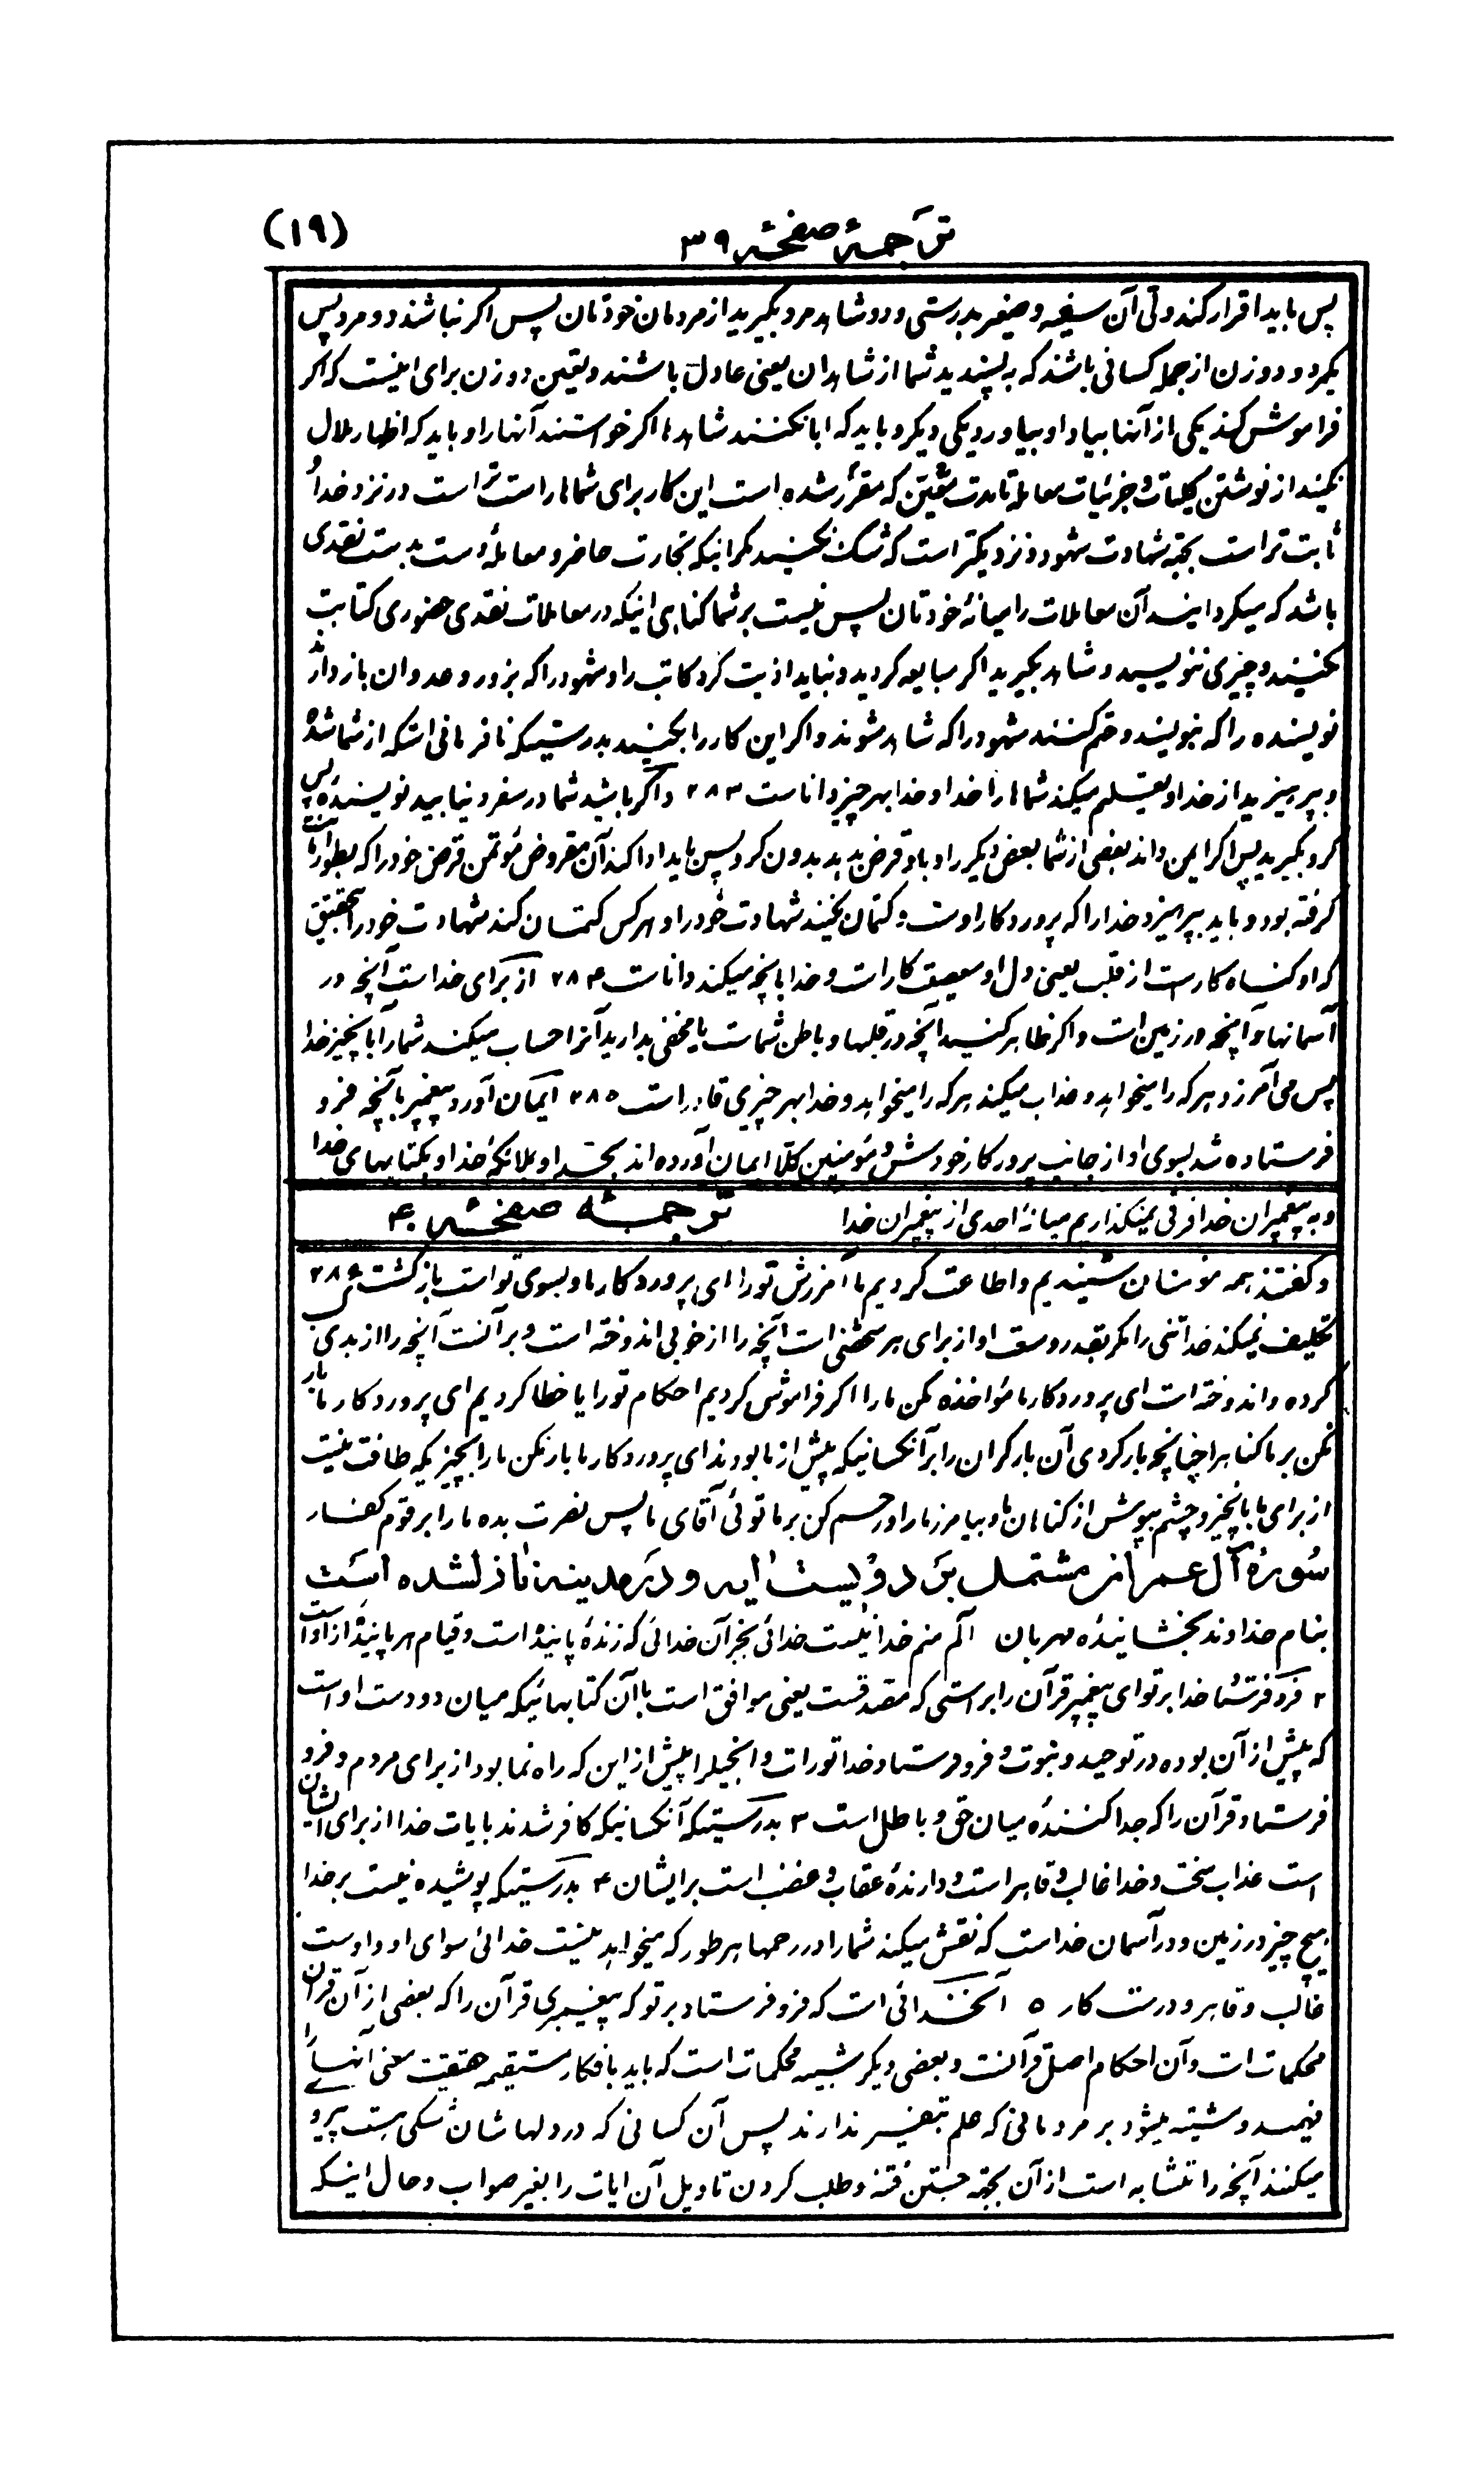 (۱۹)
ترجمۀ صفحۀ ۳۹
پس باید اقرار کند ولی آن سفیه و صغیر بدرستی و دو شاهد مرد بگیرید از مردمان خودتان پس اگر نباشند دو مرد پس
یکمرد و دو زن از جمله کسانی باشند که به پسندید شما از شاهدان یعنی عادل باشند و تعین دو زن برای اینست که اگر
فراموش کند یکی از آنها بیاد او بیاورد یکی دیگر و باید که ابا نکنند شاهدها اگر خواستند آنها را و باید که اظهار ملال
نکنید از نوشتن کلیات و جزئیات معامله تا مدت معین که مقرر شده است این کار برای شماها راست تر است در نزد خدا و
ثابت تر است بجهة شهادت شهود و نزدیکتر است که شک نکنید مگر اینکه تجارت حاضر و معاملۀ دست بدست نقدی
باشد که میگردانید آن معاملات را میانۀ خودتان پس نیست بر شما گناهی اینکه در معاملات نقدی حضوری کتابت
نکنید و چیزی ننویسید و شاهد بگیرید اگر مبایعه کردید و نباید اذیت کرد کاتب را و شهود را که بزور و عدوان باز دارند
نویسنده را که بنویسد و حتم کنند شهود را که شاهد شوند و اگر این کار را بکنید بدرستیکه نافرمانی استکه از شما شده
و بپرهیزید از خدا و تعلیم میکند شماها را خدا و خدا بهر چیز داناست ۲۸۳ و اگر باشید شما در سفر و نیابید نویسنده پس
گرو بگیرید پس اگر ایمن داند بعضی از شما بعض دیگر را و باو قرض بدهد بدون گرو پس باید ادا کند آن مقروض مؤتمن قرض خود را که بطور امانت
گرفته بود و باید بپرهیزد خدا را که پروردگار اوست و کتمان نکنید شهادت خود را و هر کس کتمان کند شهادت خود را بتحقیق
که او گناه کار است از قلب یعنی دل او معصیت کار است و خدا بآنچه میکند داناست ۲۸۴ از برای خداست آنچه در
آسمانها و آنچه در زمین است و اگر ظاهر کنید آنچه در قلبها و باطن شماست یا مخفی بدارید آنرا حساب میکند شما را بآنچیز خدا
پس می آمرزد هر که را میخواهد و عذاب میکند هر که را میخواهد و خدا بهر چیزی قادر است ۲۸۵ ایمان آورد پیغمبر بآنچه فرو
فرستاده شد بسوی او از جانب پرورکار خودش و مؤمنین کلا ایمان آورده اند بخدا و بملائکۀ خدا و بکتابهای خدا
و به پیغمبران خدا فرقی نمیگذاریم میانۀ احدی از پیغمبران خدا
ترجمۀ صفحۀ ۴۰
و گفتند همه مؤمنان شنیدیم و اطاعت کردیم ما آمرزش تو را ای پروردگار ما و بسوی تو است بازگشت ۲۸۶
تکلیف نمیکند خدا تنی را مگر بقدر وسعت او از برای هر شخصی است آنچه را از خوبی اندوخته است و بر آنست آنچه را از بدی
کرده و اندوخته است ای پروردگار ما مؤاخذه مکن ما را اگر فراموش کردیم احکام تو را یا خطا کردیم ای پروردگار ما بار
مکن بر ما گناه را چنانچه بار کردی آن بار گران را بر آنکسانیکه پیش از ما بودند ای پروردگار ما بار مکن ما را بچیزیکه طاقت نیست
از برای ما بآنچیز و چشم بپوش از گناهان ما و بیامرز ما را و رحم کن بر ما توئی آقای ما پس نصرت بده ما را بر قوم کفار
سورۀ آل عمران مشتمل بر دویست ایه و در مدینه نازلشده است
بنام خداوند بخشایندۀ مهربان الم منم خدا نیست خدائی بجز آن خدائی که زندۀ پاینده است و قیام هر پاینده از او است
۲ فرو فرستاد خدا بر تو ای پیغمبر قرآن را براستی که مصدقست یعنی موافق است با آن کتابهائیکه میان دو دست او است
که پیش از آن بوده در توحید و نبوت و فرو فرستاد خدا تورات و انجیل را پیش از این که راه نما بود از برای مردم و فرو
فرستاد قرآن را که جدا کنندۀ میان حق و باطل است ۳ بدرستیکه آنکسانیکه کافر شدند بایات خدا از برای ایشان
است عذاب سخت و خدا غالب و قاهر است و دارندۀ عقاب و غضب است بر ایشان ۴ بدرستیکه پوشیده نیست بر خدا
هیچ چیز در زمین و در آسمان خداست که نقش میکند شما را در رحمها هر طور که میخواهد نیست خدائی سوای او و اوست
غالب و قاهر و درست کار ۵ آنخدائی است که فرو فرستاد بر تو که پیغمبری قرآن را که بعضی از آن قرآن
محکمات است و آن احکام اصل قرآنست و بعضی دیگر شبیه محکمات است که باید بافکار مستقیمه حقیقت معنی آنها را
فهمید و مشتبه میشود بر مردمانی که علم بتفسیر ندارند پس آن کسانی که در دلهاشان شکی هست پیرو
میکنند آنچه را متشابه است از آن بجهة جستن فتنه و طلب کردن تاویل آن ایات را بغیر صواب و حال اینکه